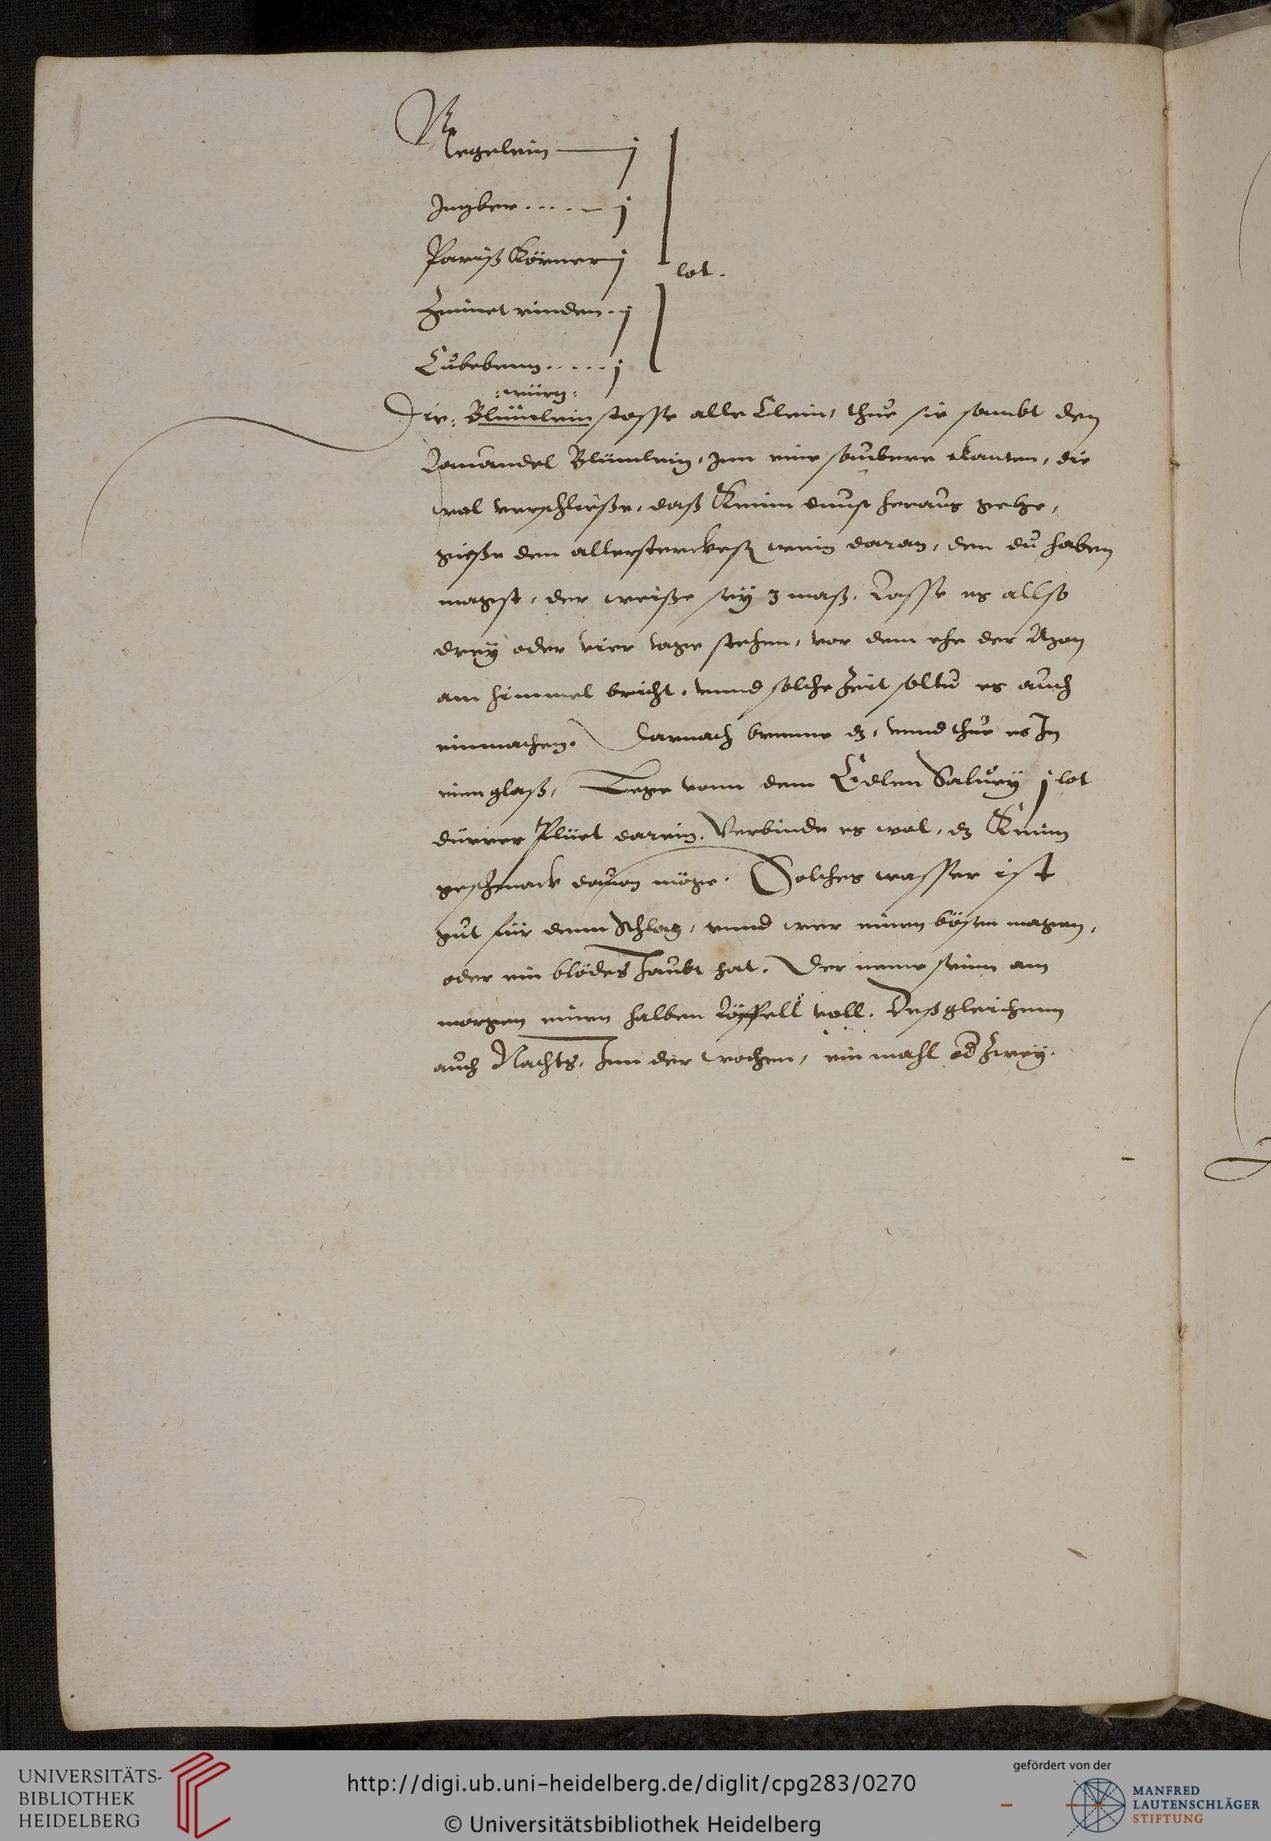 Negelein j
Jngber j
Pariß Körner j
lot.
Zimet rinden j
Cubebenn j
: würtz :
Die Blümlein stosse alle Clein, thue sie sambt den
Lauandel Blümlein, Jnn eine saubere Kanten, die
wol verschliesse, daß Keinn dunst heraus gehe,
giesse den allersterckesten wein daran, den du haben
magst, der weisse sey 3 maß, Lasse es allso
drey oder vier tage stehen, vor dem ehe der Mon
am himmel bricht, vnnd solche Zeit soltu es auch
einmachen. Darnach brenne es, vnnd thue es Jn
einn glaß, Lege vonn dem Edlen Saluey j lot
dürrer Pluet darein, Verbinde es wol, das Keinn
geschmack dauon möge. Solches wasser ist
gut für denn Schlag, vnnd wer einen bösen magen,
oder ein blödes Haubt hat. Der neme seinn am
morgen einen halben Löffell voll. Deßgleichenn
auch Nachts, Jnn der wochen, ein mahl od zwey.
UNIVERSITÄTS-
BIBLIOTHEK
HEIDELBERG
http://digi.ub.uni-heidelberg.de/diglit/cpg283/0270
© Universitätsbibliothek Heidelberg
gefördert von der
MANFRED
LAUTENSCHLÄGER
STIFTUNG